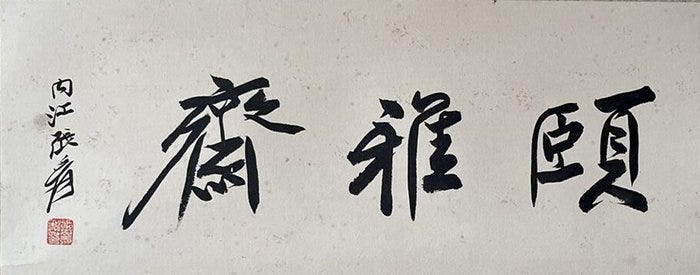 頤雅齋
內江張爰